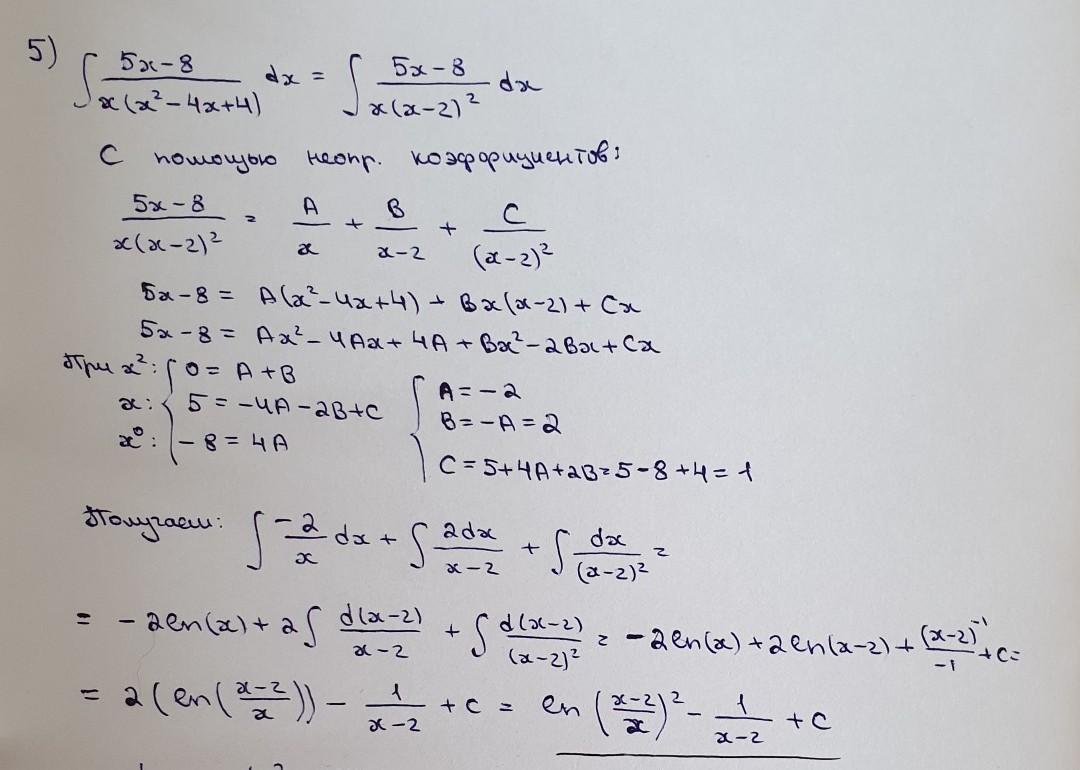 5) ∫ (5x-8)/(x(x²-4x+4)) dx = ∫ (5x-8)/(x(x-2)²) dx
С помощью неопр. коэффициентов:
(5x-8)/(x(x-2)²) = A/x + B/(x-2) + C/(x-2)²
5x-8 = A(x²-4x+4) + Bx(x-2) + Cx
5x-8 = Ax²-4Ax+4A+Bx²-2Bx+Cx
При x²: { 0 = A+B
x: 5 = -4A-2B+C
x⁰: -8 = 4A
{ A = -2
B = -A = 2
C = 5+4A+2B = 5-8+4 = 1
Получаем: ∫ -2/x dx + ∫ 2dx/(x-2) + ∫ dx/(x-2)² =
= -2ln(x) + 2∫ d(x-2)/(x-2) + ∫ d(x-2)/(x-2)² = -2ln(x)+2ln(x-2)+ (x-2)⁻¹/-1 +C=
= 2(ln((x-2)/x)) - 1/(x-2) + C = ln((x-2)/x)² - 1/(x-2) + C